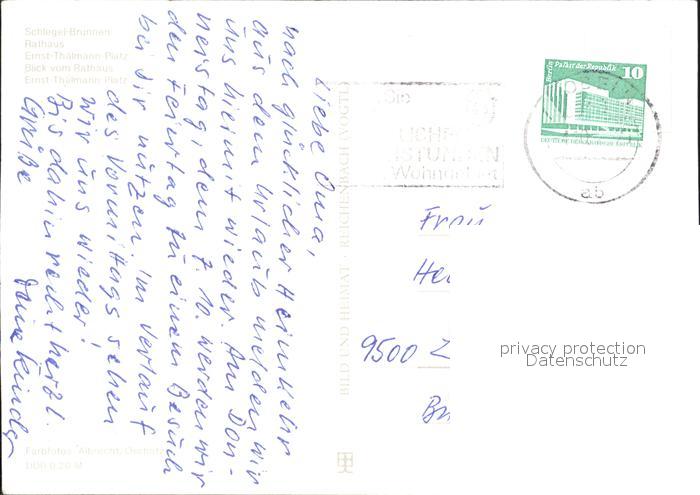 Schlegel-Brunnen
Rathaus
Ernst-Thälmann-Platz
Blick vom Rathaus
Ernst-Thälmann-Platz
Liebe Oma,
nach glücklicher Heimkehr
aus dem Urlaub melden wir
uns hiermit wieder. Am Don-
nerstag, dem 7.10. werden wir
den Feiertag zu einem Besuch
bei Dir nützen. Im Verlauf
des Vormittags sehen
wir uns wieder!
Bis dahin recht herzl.
Grüße
Deine Kinder
Farbfotos: Albrecht, Oschatz
DDG 0,20 M
BILD UND HEIMAT · REICHENBACH (VOGTL)
Sie
STUNGEN
Wohngebiet
Berlin Palast der Republik
10
DEUTSCHE DEMOKRATISCHE REPUBLIK
ab
Frau
He
9500 Z
privacy protection
Datenschutz